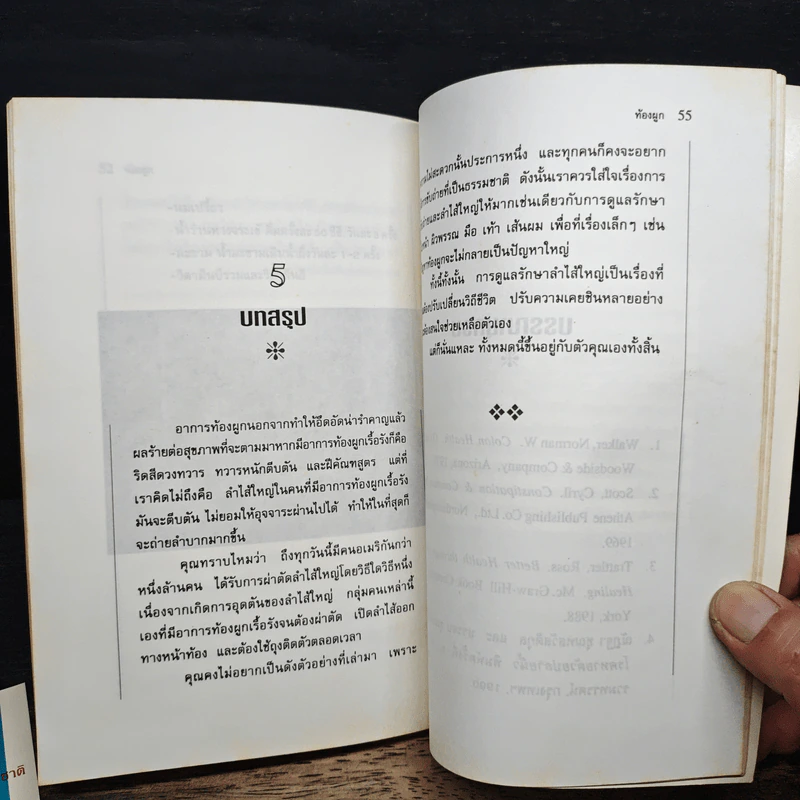 5
บทสรุป
อาการท้องผูกนอกจากทำให้อึดอัดน่ารำคาญแล้ว
ผลร้ายต่อสุขภาพที่จะตามมาหากมีอาการท้องผูกเรื้อรังก็คือ
ริดสีดวงทวาร ทวารหนักตีบตัน และฝีคัณฑสูตร แต่ที่
เราคิดไม่ถึงคือ ลำไส้ใหญ่ในคนที่มีอาการท้องผูกเรื้อรัง
มันจะตีบตัน ไม่ยอมให้อุจจาระผ่านไปได้ ทำให้ในที่สุดก็
จะถ่ายลำบากมากขึ้น
คุณทราบไหมว่า ถึงทุกวันนี้มีคนอเมริกันกว่า
หนึ่งล้านคน ได้รับการผ่าตัดลำไส้ใหญ่โดยวิธีใดวิธีหนึ่ง
เนื่องจากเกิดการอุดตันของลำไส้ใหญ่ กลุ่มคนเหล่านี้
เองที่มีอาการท้องผูกเรื้อรังจนต้องผ่าตัด เปิดลำไส้ออก
ทางหน้าท้อง และต้องใช้ถุงติดตัวตลอดเวลา
คุณคงไม่อยากเป็นดังตัวอย่างที่เล่ามา เพราะ
ท้องผูก 55
ไม่สะดวกนั้นประการหนึ่ง และทุกคนก็คงจะอยาก
ขับถ่ายที่เป็นธรรมชาติ ดังนั้นเราควรใส่ใจเรื่องการ
และลำไส้ใหญ่ให้มากเช่นเดียวกับการดูแลรักษา
ผิวพรรณ มือ เท้า เส้นผม เพื่อที่เรื่องเล็กๆ เช่น
ท้องผูกจะไม่กลายเป็นปัญหาใหญ่
ทั้งนี้ทั้งนั้น การดูแลรักษาลำไส้ใหญ่เป็นเรื่องที่
ปรับเปลี่ยนวิถีชีวิต ปรับความเคยชินหลายอย่าง
สนใจช่วยเหลือตัวเอง
แต่ก็นั่นแหละ ทั้งหมดนี้ขึ้นอยู่กับตัวคุณเองทั้งสิ้น
ชาติ